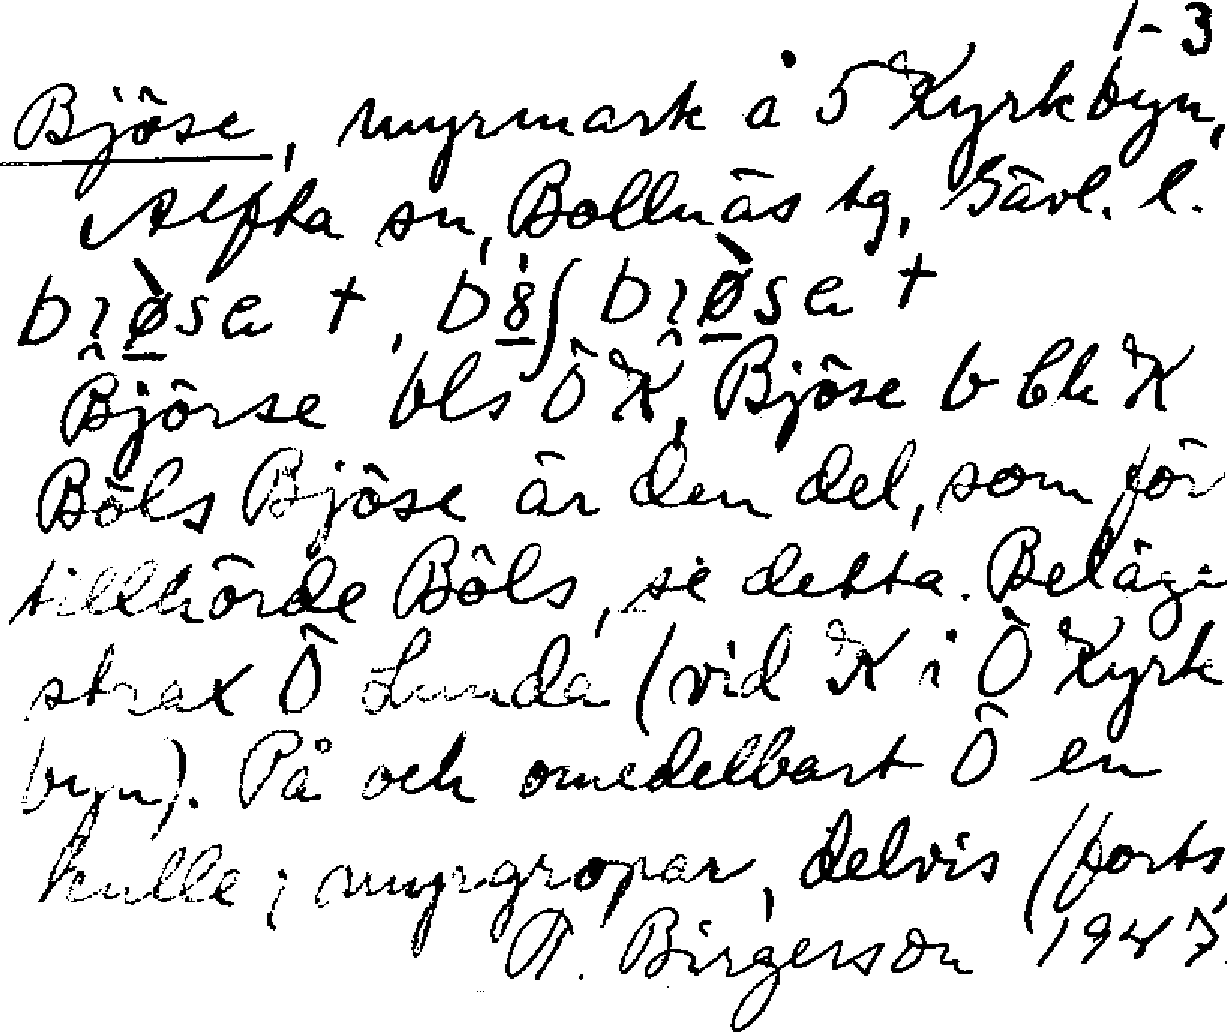 1-3
Bjöse, myrmark å 5 Kyrkbyn,
Alfta sn, Bollnäs tg, Gävl. l.
Björse bls Ö K, Bjöse b bk K
Böls Bjöse är den del, som för
tillhörde Böls, se detta. Beläge
strax Ö Lunda (vid K i Ö Kyrk
byn). På och omedelbart Ö en
kulle; myrgropar, delvis (forts,
Birgerson 1947